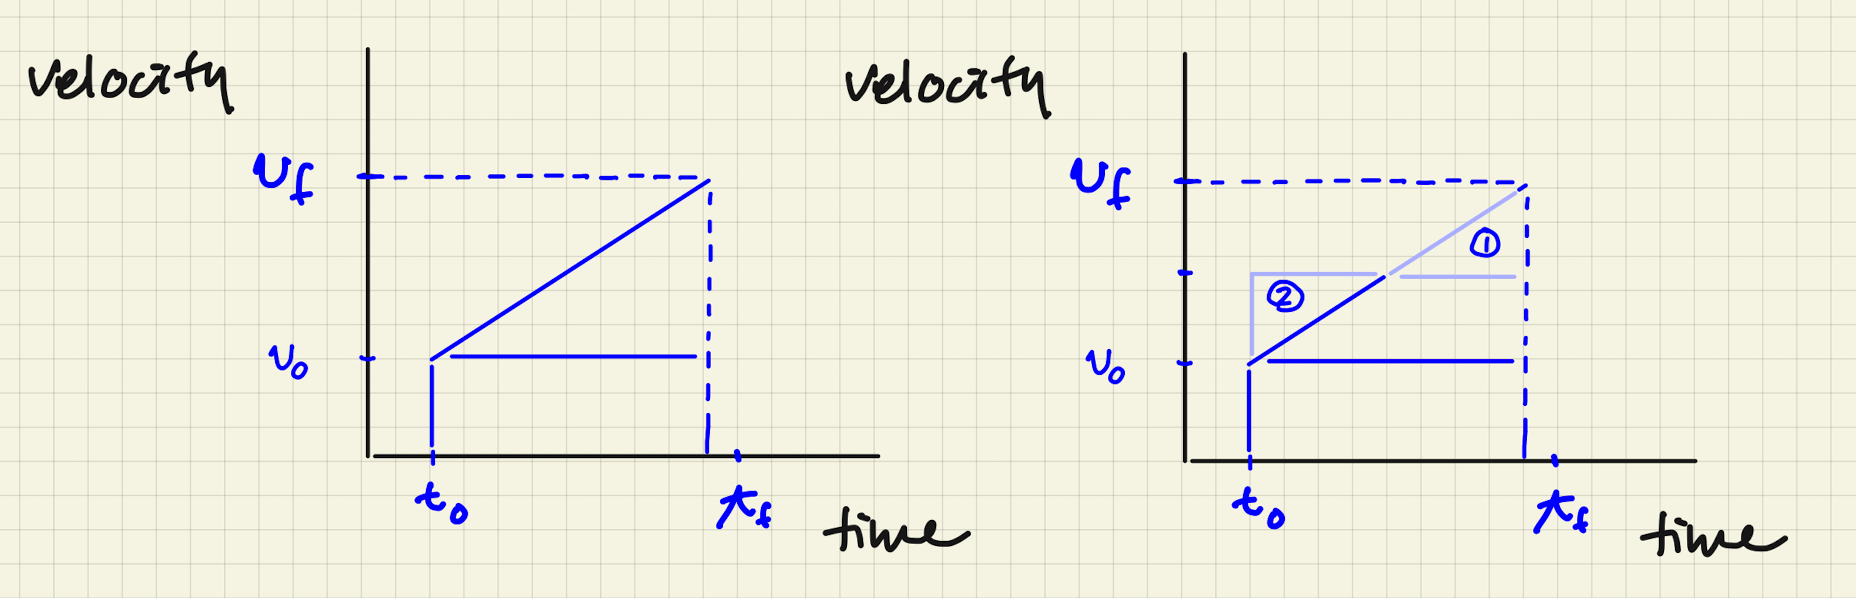 velocity
v_f
v_0
t_0
t_f
time
velocity
v_f
①
②
v_0
t_0
t_f
time